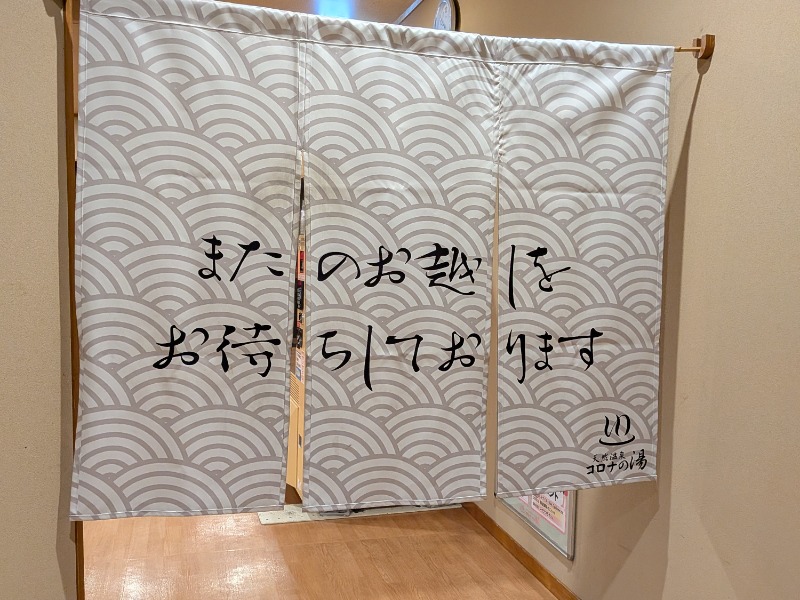 またのお越しを
お待ちしております
天然温泉
コロナの湯